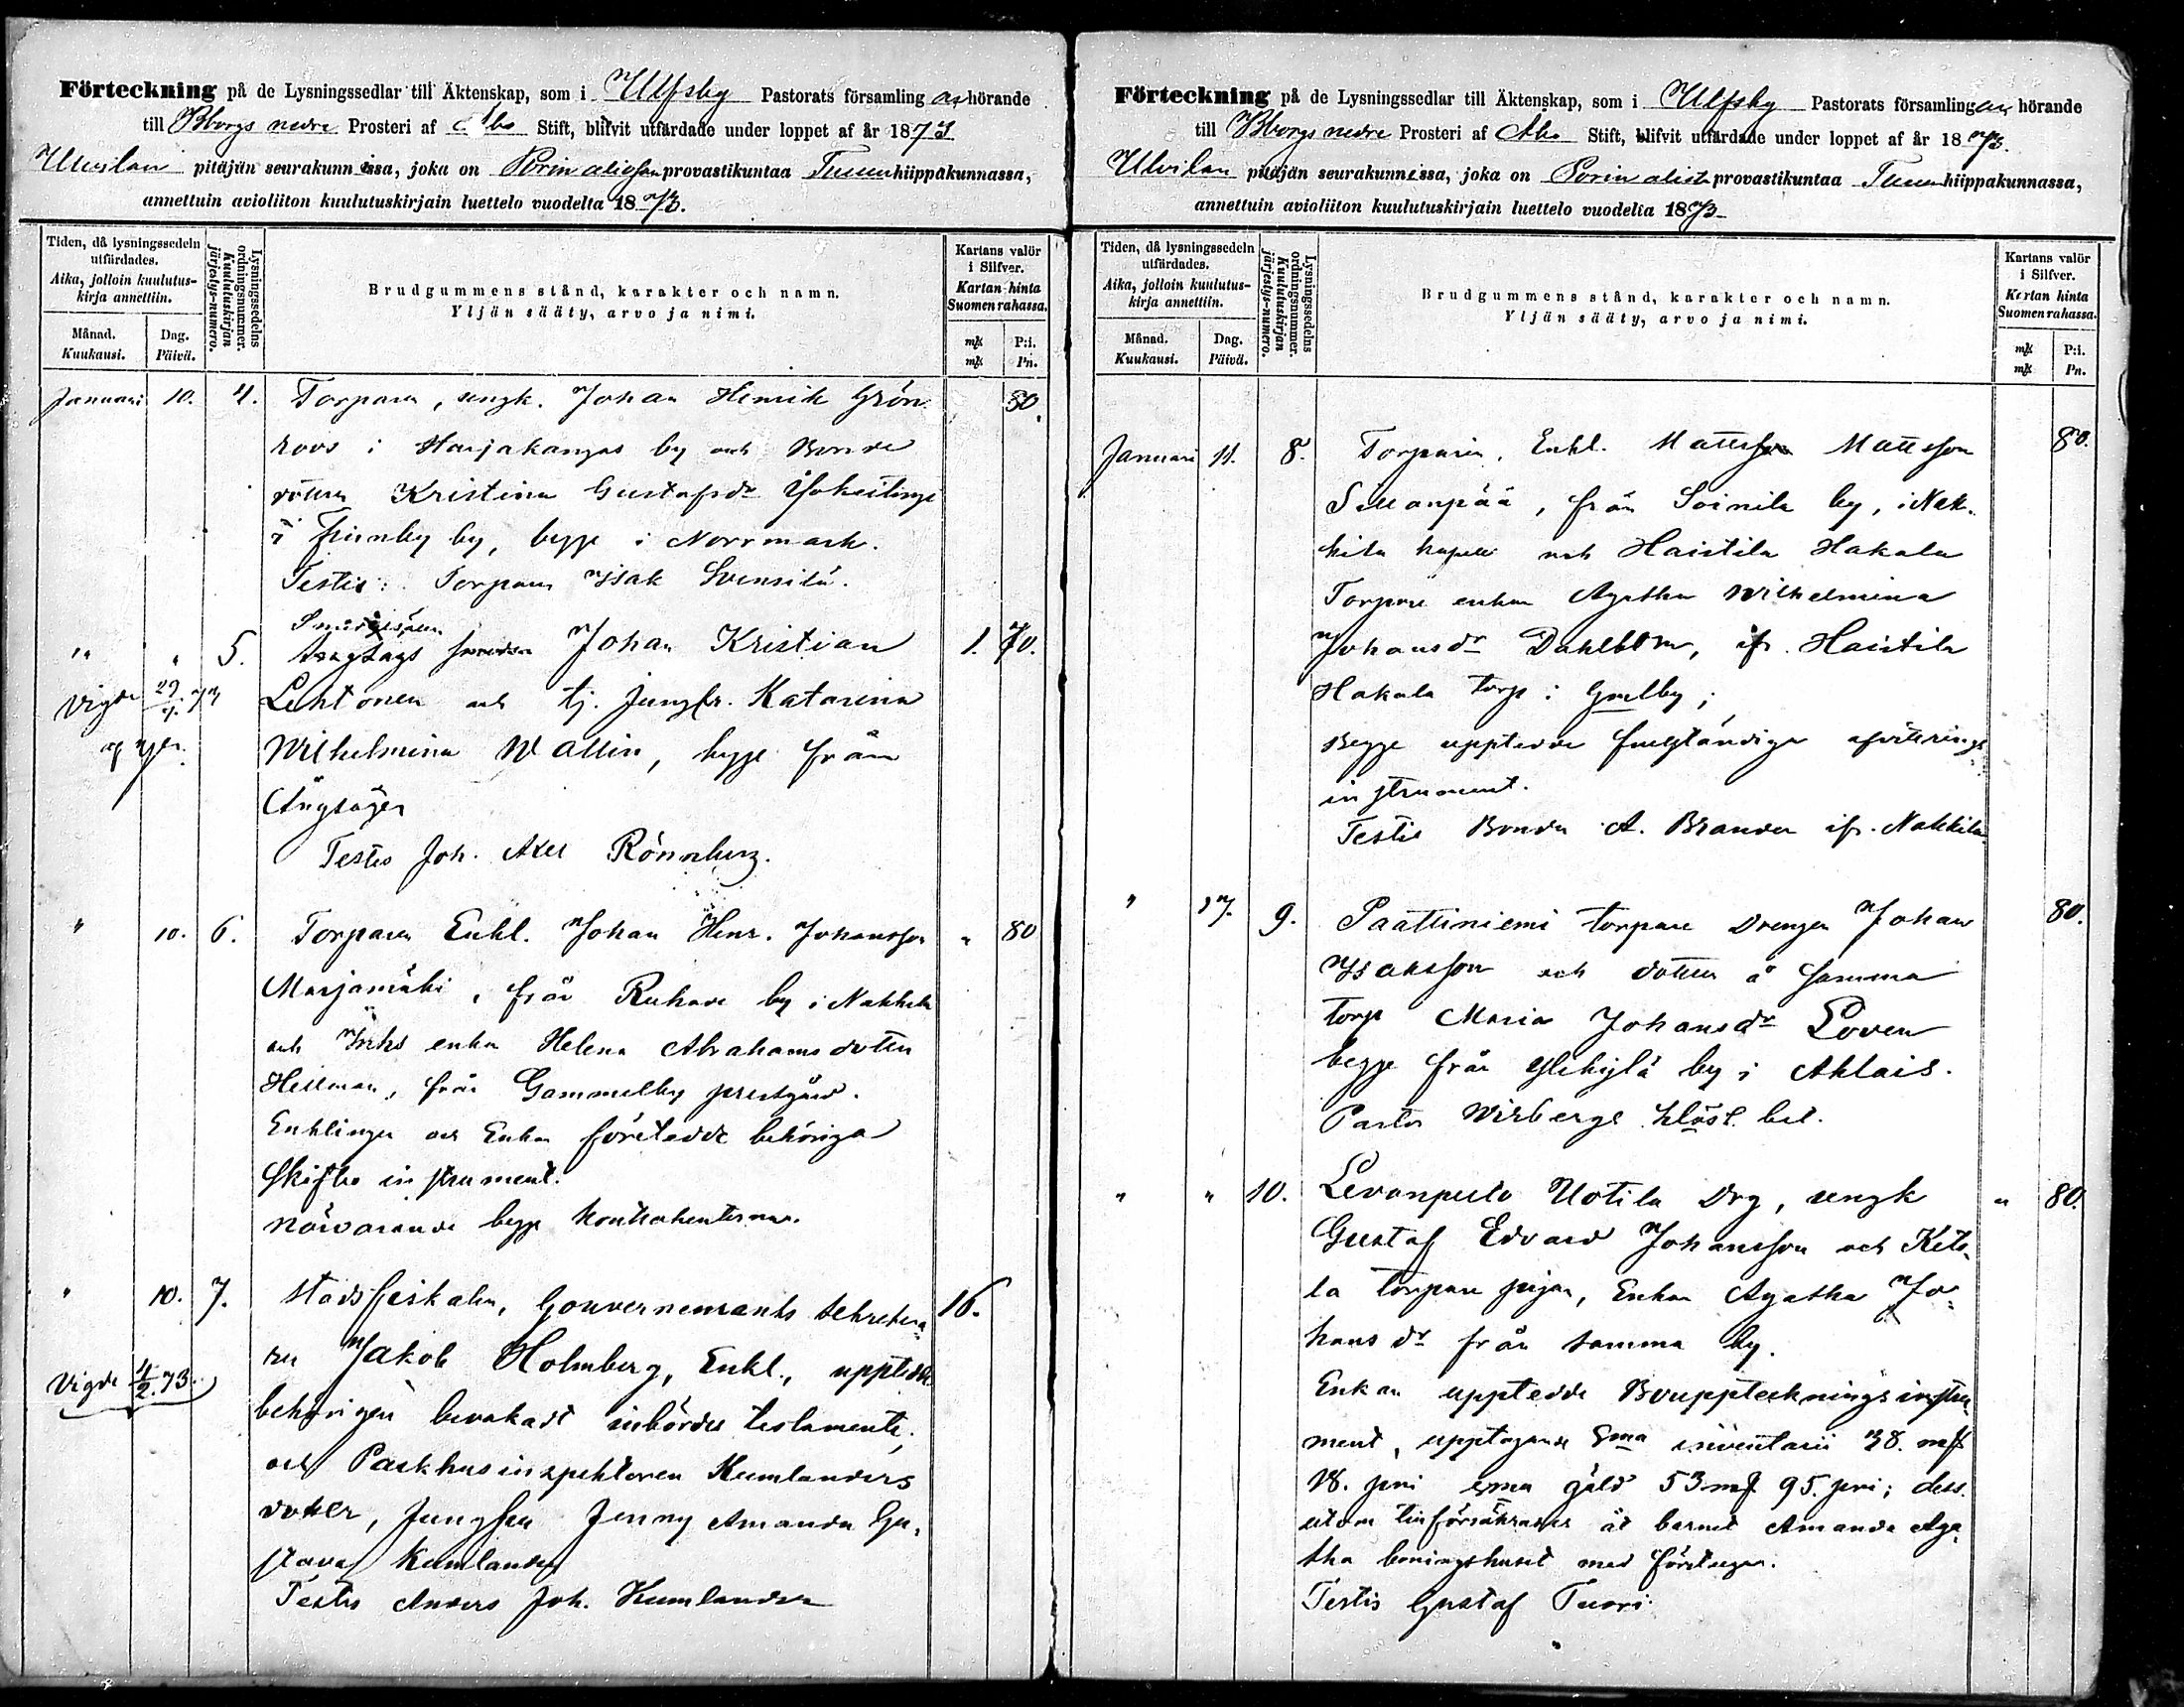 Förteckning på de Lysningssedlar till Äktenskap, som i Ulfsby Pastorats församling as hörande
till Bborgs nedre Prosteri af Åbo Stift, blifvit utfärdade under loppet af år 1873
Ulvilan pitäjän seurakunnissa, joka on Porin alisen provastikuntaa Turun hiippakunnassa,
annettuin avioliiton kuulutuskirjain luettelo vuodelta 1873.
Tiden, då lysningssedeln utfärdades.
Aika, jolloin kuulutus-kirja annettiin.
Månad. Kuukausi.
Dag. Päivä.
Lysningssedelns ordningsnummer.
Kuulutuskirjan järjestys-numero.
Brudgummens stånd, karakter och namn.
Yljän sääty, arvo ja nimi.
Kartans valör i Silfver.
Kartan hinta Suomen rahassa.
mk P:i.
mk Pn.
Januari 10. 4. Torparen, ungk. Johan Henrik Grön- 80.
roos i Harjakangas by och Bonde
dottren Kristina Gustafsdr
i Finnby by, begge i Norrmark.
Testis: Torparen Isak Svensilä.
" " 5. Johan Kristian 1. 70.
Vigde 29/4. 73 Lehtonen och tj. jungfr. Katarina
Wilhelmina Wallin, begge från
Ångsågen
Testes Joh. Axel Rönnberg.
" 10. 6. Torparen Enkl. Johan Henr. Johansson " 80
Marjamäki, från Ruhade by i Nakkila
och Inhs enkan Helena Abrahamsdotter
Hellman, från Gammelby prestgård.
Enklingen och Enkan företedde behöriga
skiftes instrument.
närvarande begge kontrahenterna.
" 10. 7. Stadsfiskalen, Gouvernements Sekretera- 16.
Vigde 4/2. 73. ren Jakob Holmberg, Enkl., uppteedde
behörigen bevakadt inbördes testamente,
och Packhusinspektoren Kumlanders
dotter, Jungfru Jenny Amanda Gu-
stava Kumlander
Testes Anders Joh. Kumlander
Förteckning på de Lysningssedlar till Äktenskap, som i Ulfsby Pastorats församling as hörande
till Bborgs nedre Prosteri af Åbo Stift, blifvit utfärdade under loppet af år 1873.
Ulvilan pitäjän seurakunnissa, joka on Porin alisen provastikuntaa Turun hiippakunnassa,
annettuin avioliiton kuulutuskirjain luettelo vuodelta 1873
Tiden, då lysningssedeln utfärdades.
Aika, jolloin kuulutus-kirja annettiin.
Månad. Kuukausi.
Dag. Päivä.
Lysningssedelns ordningsnummer.
Kuulutuskirjan järjestys-numero.
Brudgummens stånd, karakter och namn.
Yljän sääty, arvo ja nimi.
Kartans valör i Silfver.
Kartan hinta Suomen rahassa.
mk P:i.
mk Pn.
Januari 11. 8. Torparen, Enkl. Mattsson Mattsson 80.
Sillanpää, från Soinila by, i Nak-
kila kapell och Haistila Hakala
Torpare enkan Agatha Wilhelmina
Johansdr Dahlbom, ifr. Haistila
Hakala torp i Gmlby;
Begge upptedde fullständiga afvittrings
instrument.
Testis Bonden A. Brander ifr. Nakkila
" 17. 9. Paattiniemi torpare Drengen Johan 80.
Isaksson och dottren å samma
torp Maria Johansdr Loven
begge från Ylikylä by i Ahlais.
Pastor Wirbergs bet.
" " 10. Levanpelto Uotila Drg, ungk " 80.
Gustaf Edvard Johansson och Kets-
la torpare pigan, Enkan Agatha Jo-
hansdr från samma by.
Enkan upptedde Bouppteckningsinstru-
ment, upptagande Sma inventarii 38. mk
18. pni sma gäld 53 mk 95. pni; dess-
utom tillförsäkrades åt barnet Amanda Aga-
tha boningshuset med
Testis Gustaf Tuori